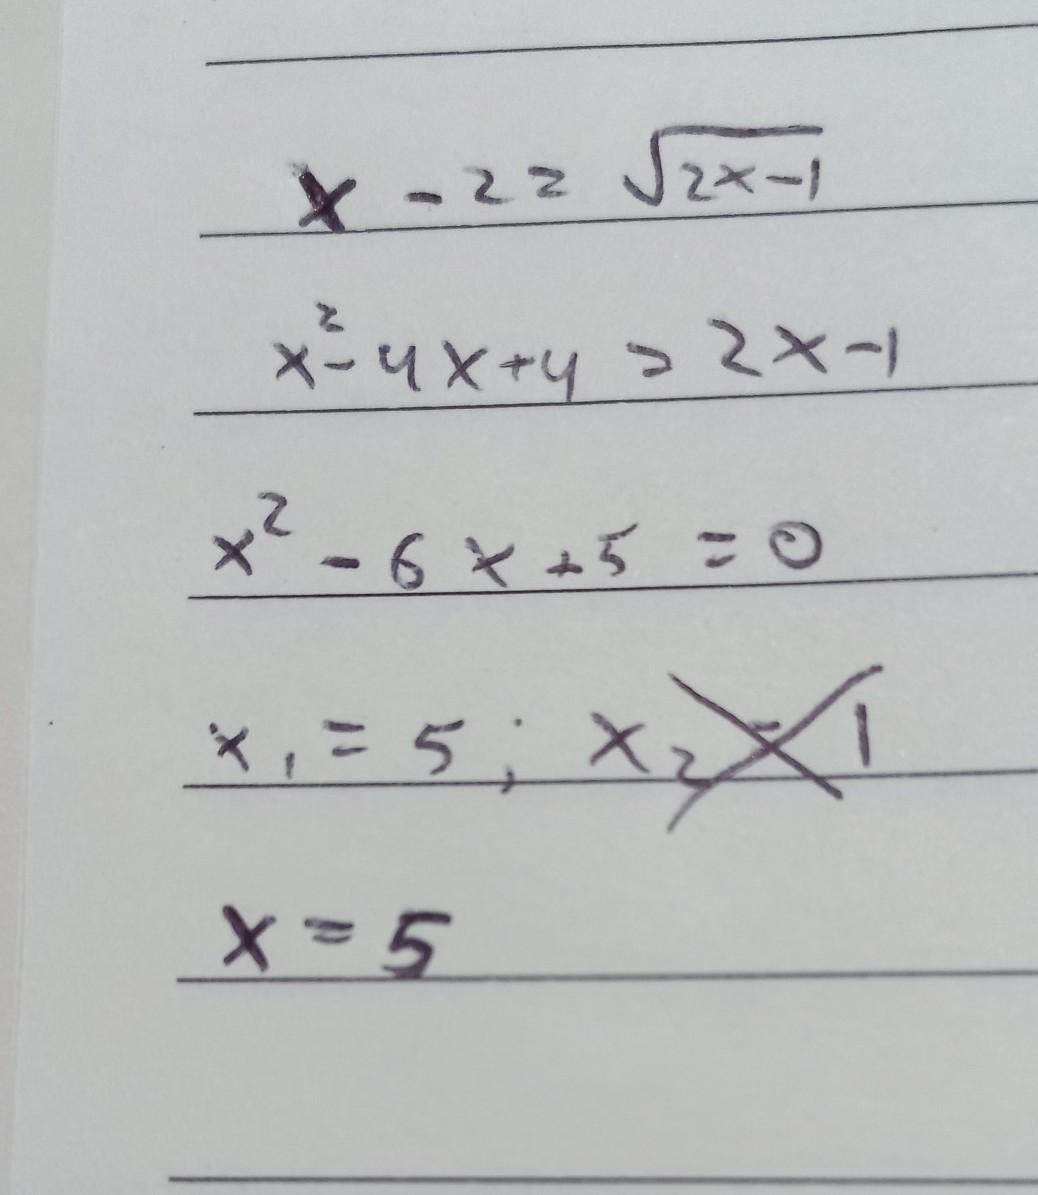 x - 2 = √(2x-1)
x² - 4x + 4 = 2x - 1
x² - 6x + 5 = 0
x₁ = 5 ; x₂ = 1
x = 5